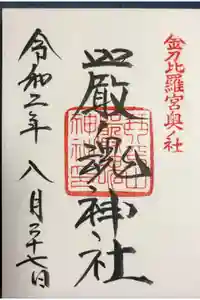 金刀比羅宮奥ノ社
嚴魂神社
令和二年八月二十七日